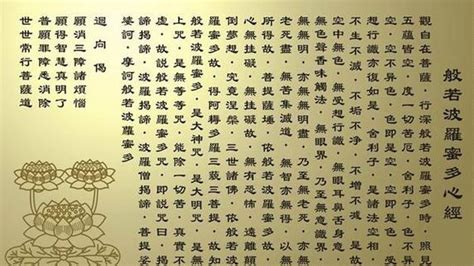 般若波羅蜜多心經
觀自在菩薩·行深般若波羅蜜多時·照見
五蘊皆空·度一切苦厄·舍利子·色不異
空·空不異色·色即是空·空即是色·受
想行識亦復如是·舍利子·是諸法空相·
不生不滅·不垢不淨·不增不減·是故
空中無色·無受想行識·無眼耳鼻舌身意·
無色聲香味觸法·無眼界·乃至無意識界·
無無明·亦無無明盡·乃至無老死·亦無
老死盡·無苦集滅道·無智亦無得·以無
所得故·菩提薩埵·依般若波羅蜜多故·
心無罣礙·無罣礙故·無有恐怖·遠離顛
倒夢想·究竟涅槃·三世諸佛·依般若波
羅蜜多故·得阿耨多羅三藐三菩提·故知
般若波羅蜜多·是大神咒·是大明咒·是無
上咒·是無等等咒·能除一切苦·真實不
虛·故說般若波羅蜜多咒·即說咒曰·揭
諦揭諦·波羅揭諦·波羅僧揭諦·菩提娑
婆訶·摩訶般若波羅蜜多
迴向偈
願消三障諸煩惱
願得智慧真明了
普願罪障悉消除
世世常行菩薩道